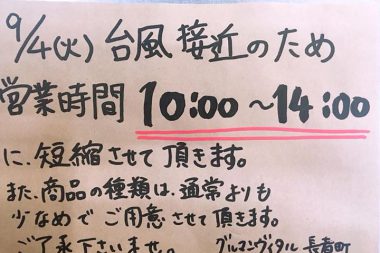 9/4(火) 台風接近のため
営業時間 10:00~14:00
に、短縮させて頂きます。
また、商品の種類は、通常よりも
少なめで ご用意させて頂きます。
ご了承下さいませ。 グルマンヴィタル 長者町